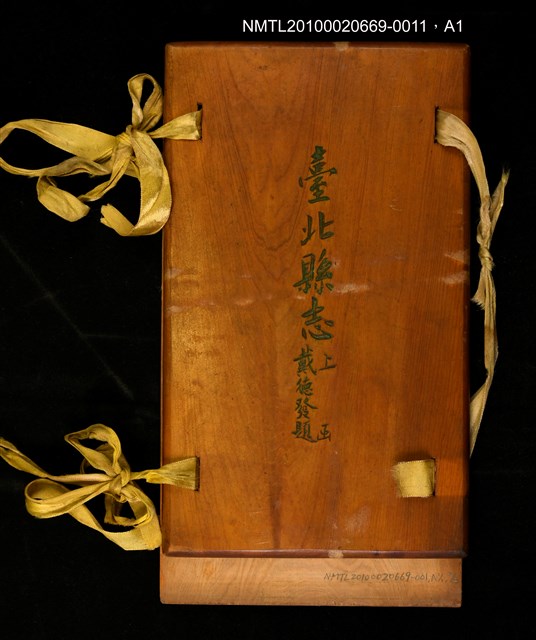 NMTL20100020669-0011，A1
臺北縣志
上函
戴德發題